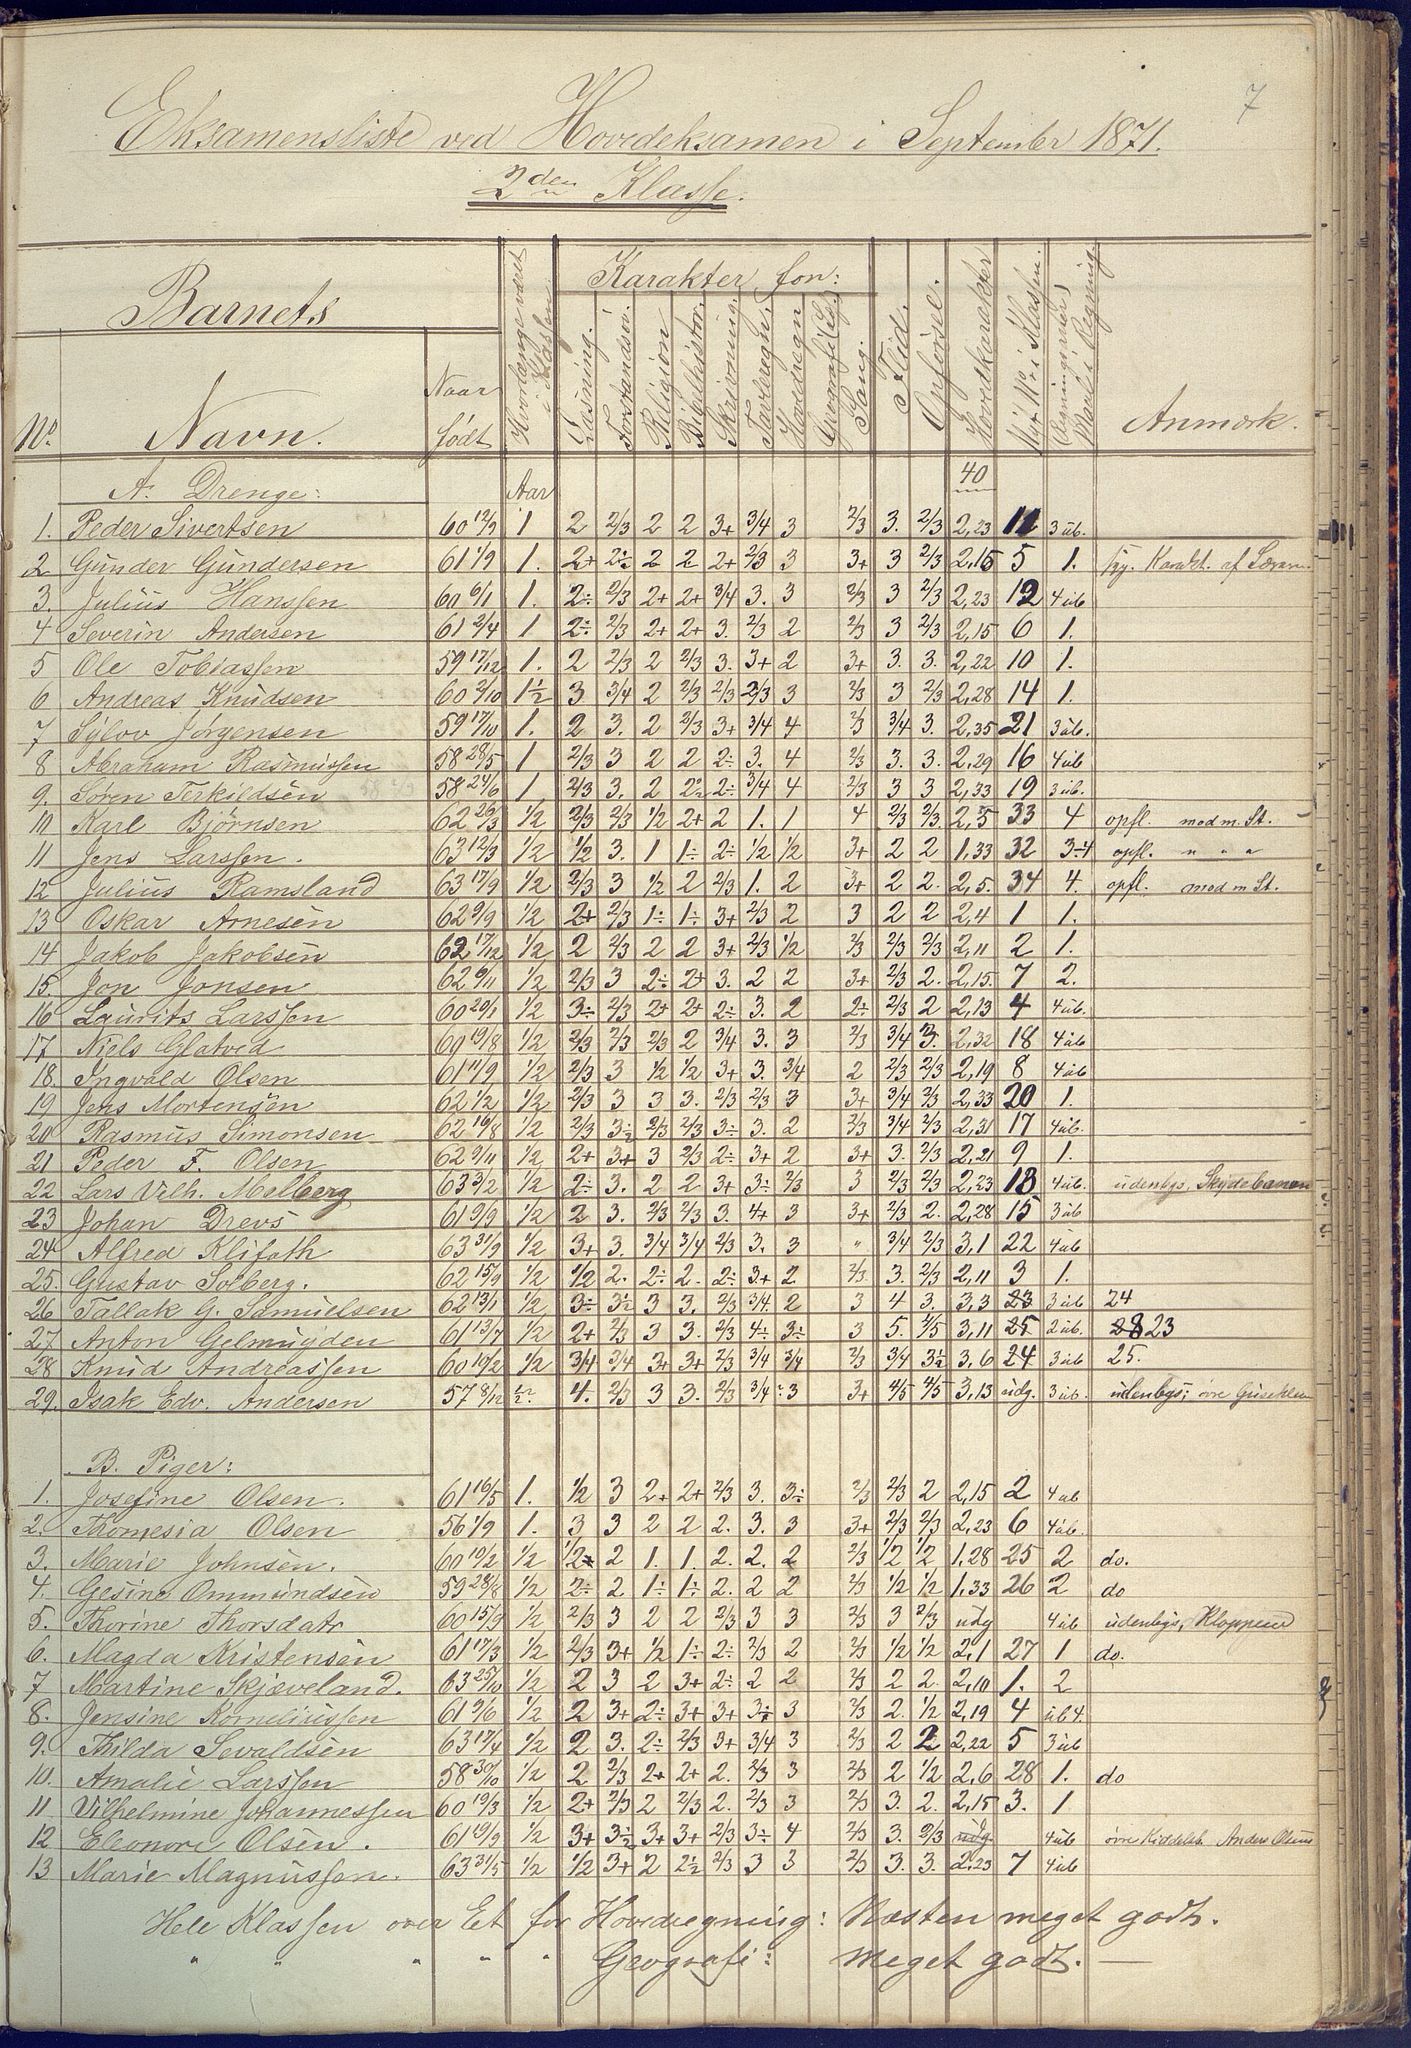 7
Eksamensliste ved Hovedeksamen i September 1871.
2den Klasse.
Barnets
No. Navn. Naar født Hvorlænge været i Klassen Karakter for: Læsning. Forstandsöv. Religion Bibelhistor. Skrivning. Tavleregn. Hovedregn Geografi Sang. Flid. Opförsel. Hovedkarakter Nyt No i Klassen. Anmærk.
A. Drenge: Aar 40
1. Peder Sivertsen 60 12/9 1 2 2/3 2 2 3+ 3/4 3 2/3 3. 2/3 2,23 11 3 üb.
2 Gunder Gundersen 61 1/9 1. 2+ 2½ 2 2 2+ 2/3 3 3+ 3 2/3 2,15 5 1. syg. Karakt. af Lærer.
3. Julius Hanssen 60 6/11 1. 2÷ 2/3 2+ 2+ 3/4 3. 3 2/3 3 2/3 2,23 12 4 üb
4 Severin Andersen 61 2/4 1 2÷ 2/3 2+ 2+ 3. 2/3 2 2/3 3 2/3 2,15 6 1.
5 Ole Tobiassen 59 17/12 1. 2 2/3 2 2/3 3. 3+ 2 3+ 3. 3. 2,22 10 1.
6 Andreas Knudsen 60 2/10 1½ 3 3/4 2 2/3 2/3 2/3 3 2/3 3 2/3 2,28 14 1.
7 Sylov Jørgensen 59 17/10 1. 2 3. 2 2/3 3+ 3/4 4 2/3 3/4 3. 2,35 21 3 üb.
8 Abraham Rasmussen 58 28/5 1 2/3 3 2 2 2÷ 3. 4 2/3 3. 3. 2,29 16 4 üb
9. Søren Terkildsen 58 24/6 1 2/3 3. 2 2½ 2÷ 3/4 4 2/3 3 3 2,33 19 3 üb.
10 Karl Björnsen 62 26/3 1/2 2/3 2/3 1/2 2+ 2 1. 1 4 2/3 2/3. 2,5 33 4 opfl. med m. St.
11 Jens Larssen. 63 12/3 1/2 1/2 3. 1 1÷ 2÷ 1/2 1/2 3+ 2 2 1,33 32 3÷4 opfl. " " "
12 Julius Ramsland 63 17/9 1/2 2/3 3 1/2 2 2/3 1. 2 3+ 2 2. 2,5. 34 4. opfl. med m St.
13 Oskar Arnesen 62 9/9 1/2 2+ 2/3 1÷ 1÷ 3+ 2/3 2 3 2 2 2,4 1 1.
14 Jakob Jakobsen 62 17/12 1/2 2 2/3 2 2 3+ 2/3 1/2 2/3 2/3 2/3 2,11 2 1.
15. Jon Jonsen 62 6/11 1/2 2/3 3 2÷ 2+ 3. 2 2 3+ 2/3 2. 2,15. 7 2.
16 Laurits Larssen 60 20/1 1/2 3÷ 2/3 2+ 2+ 2÷ 3. 2 2÷ 2/3 2 2,13 4 4 üb.
17 Niels Glatved 60 19/8 1/2 2/3 2/3 2/3 2 3/4 3. 3 2/3 3/4 3. 2,32 18 4 üb
18. Ingvald Olsen 61 11/9 1/2 2/3 3 1/2 1/2 3+ 3. 3/4 2 2/3 2/3 2,19 8 4 üb
19 Jens Mortensen 62 1/2 1/2 2/3 3 3 3. 2/3 2/3 3 3+ 3/4 2/3 2,33 20 1.
20 Rasmus Simonsen 62 16/8 1/2 2/3 3½ 2/3 2/3 3÷ 3. 2 2/3 3/4 2/3 2,31 17 4 üb.
21 Peder F. Olsen 62 9/11 1/2 2+ 3+ 3 2/3 2÷ 3+ 2 3+ 3. 2/3 2,21 9 1.
22 Lars Vilh. Melberg 63 3/2 1/2 2÷ 3. 2 2 3+ 3÷ 2/3 3 2/3 2/3 2,23 13 4 üb. udenbys, Skydebanen
23 Johan Drevs 61 9/9 1/2 2 3. 2/3 2/3 3. 4+ 3 3+ 2/3 2. 2,28 15 3 üb
24 Alfred Klifath 63 31/9 1/2 3+ 3. 3/4 3/4 2/3 3. 3 " 3/4 2/3 3,1 22 4 üb
25. Gustav Solberg. 62 15/9 1/2 1/2 2. 2÷ 2. 2÷ 3+ 2 2/3 3. 2/3 2,11 3 1.
26 Tallak G. Samuelsen 62 13/1 1/2 3÷ 3½ 3 3. 2/3 3/4. 2 3 4 3. 3,3 23 3 üb 24
27 Anton Gelmuyden 61 13/7 1/2 2+ 2/3 3 3. 2/3 4÷ 3÷ 3 5. 4/5 3,11 25 2 üb. 28 23
28 Knud Andreassen 60 10/2 1/2 3/4 3/4 3+ 3+ 2/3 3/4 3/4 2/3 3/4 3½ 3,6 24 3 üb 25.
29. Isak Edv. Andersen 57 8/12 1/2. 4. 2/3 3 3. 2/3 3/4 3 3+ 4/5 4/5 3,13 udg. 3 üb. udenbys; övre
B. Piger:
1. Josefine Olsen. 61 16/5 1. 1/2 3 2+ 2+ 2/3 3. 3÷ 2/3 2/3 2 2,15 2 4 üb
2. Thomesia Olsen 56 1/9 1. 3 3 2 2 2. 3. 3 3+ 2/3 2/3 2,23 6 4 üb.
3. Marie Johnsen. 60 10/2 1/2 1/2 2 1. 1. 2. 2. 2 2/3 1/2 1/2 1,28 25 2 do.
4. Gesine Ommundsen 59 28/8 1/2 2÷ 2 1÷ 1÷ 2. 2 2 2/3 1/2 1/2 1,33 26 2 do
5. Thorine Thorsdatr 60 15/9 1/2 2/3 3 2 2 2/3 3 3 2/3 3 2/3 udg 4 üb udenbys, Kloppene
6. Magda Kristensen 61 17/3 1/2 2/3 3+ 1/2 1÷ 2÷ 2/3 2 2/3 1/2 1/2 2,1 27 1 do.
7 Martine Skjæveland. 63 25/10 1/2 2 3 2 3+ 2÷ 2 2 2/3 2 2. 2,10 1. 2
8. Jensine Korneliussen 61 9/6 1/2 2 3+ 2÷ 3+ 3+ 3÷ 3 2/3 2. 1/2 2,19 4 üb 4.
9. Thilda Sevaldsen 63 17/4 1/2 2 3. 2÷ 2/3 3+ 3/4 3 2/3 2 2 2,22 5 3 üb
10. Amalie Larssen 58 30/10 1/2 2 2/3 2+ 2+ 2. 2/3 3 2/3 2 1/2 2,6 28 1. do
11 Vilhelmine Johannessen 60 19/3 1/2 2+ 2/3 2 2/3 2. 2/3 3 2/3 3. 2. 2,15 3. 1
12 Eleonore Olsen. 61 19/9 1/2 3+ 3½ 3+ 3+ 2/3 3÷ 4 2/3 3. 2/3 udg 4 üb Anders Olsens
13 Marie Magnussen. 63 31/5 1/2 1/2 3+ 2 2½ 2/3 3 3 2/3 3. 3. 2,23 7 4 üb
Hele Klassen over Et for Hovedregning: Næsten meget godt.
" " " " " Geografi: Meget godt. —